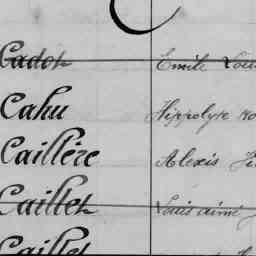 C
Cadot Emile Loui
Cahu Hippolyte
Caillère Alexis
Caillet Louis aimé
Caillet